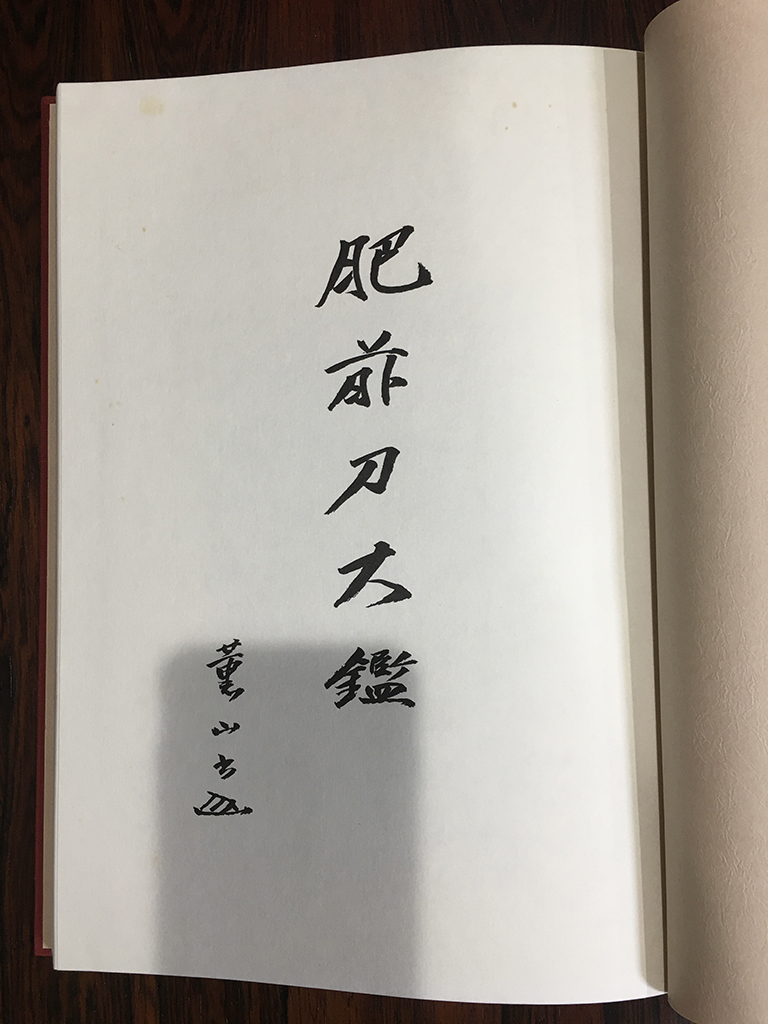 肥前刀大鑑
薫山書